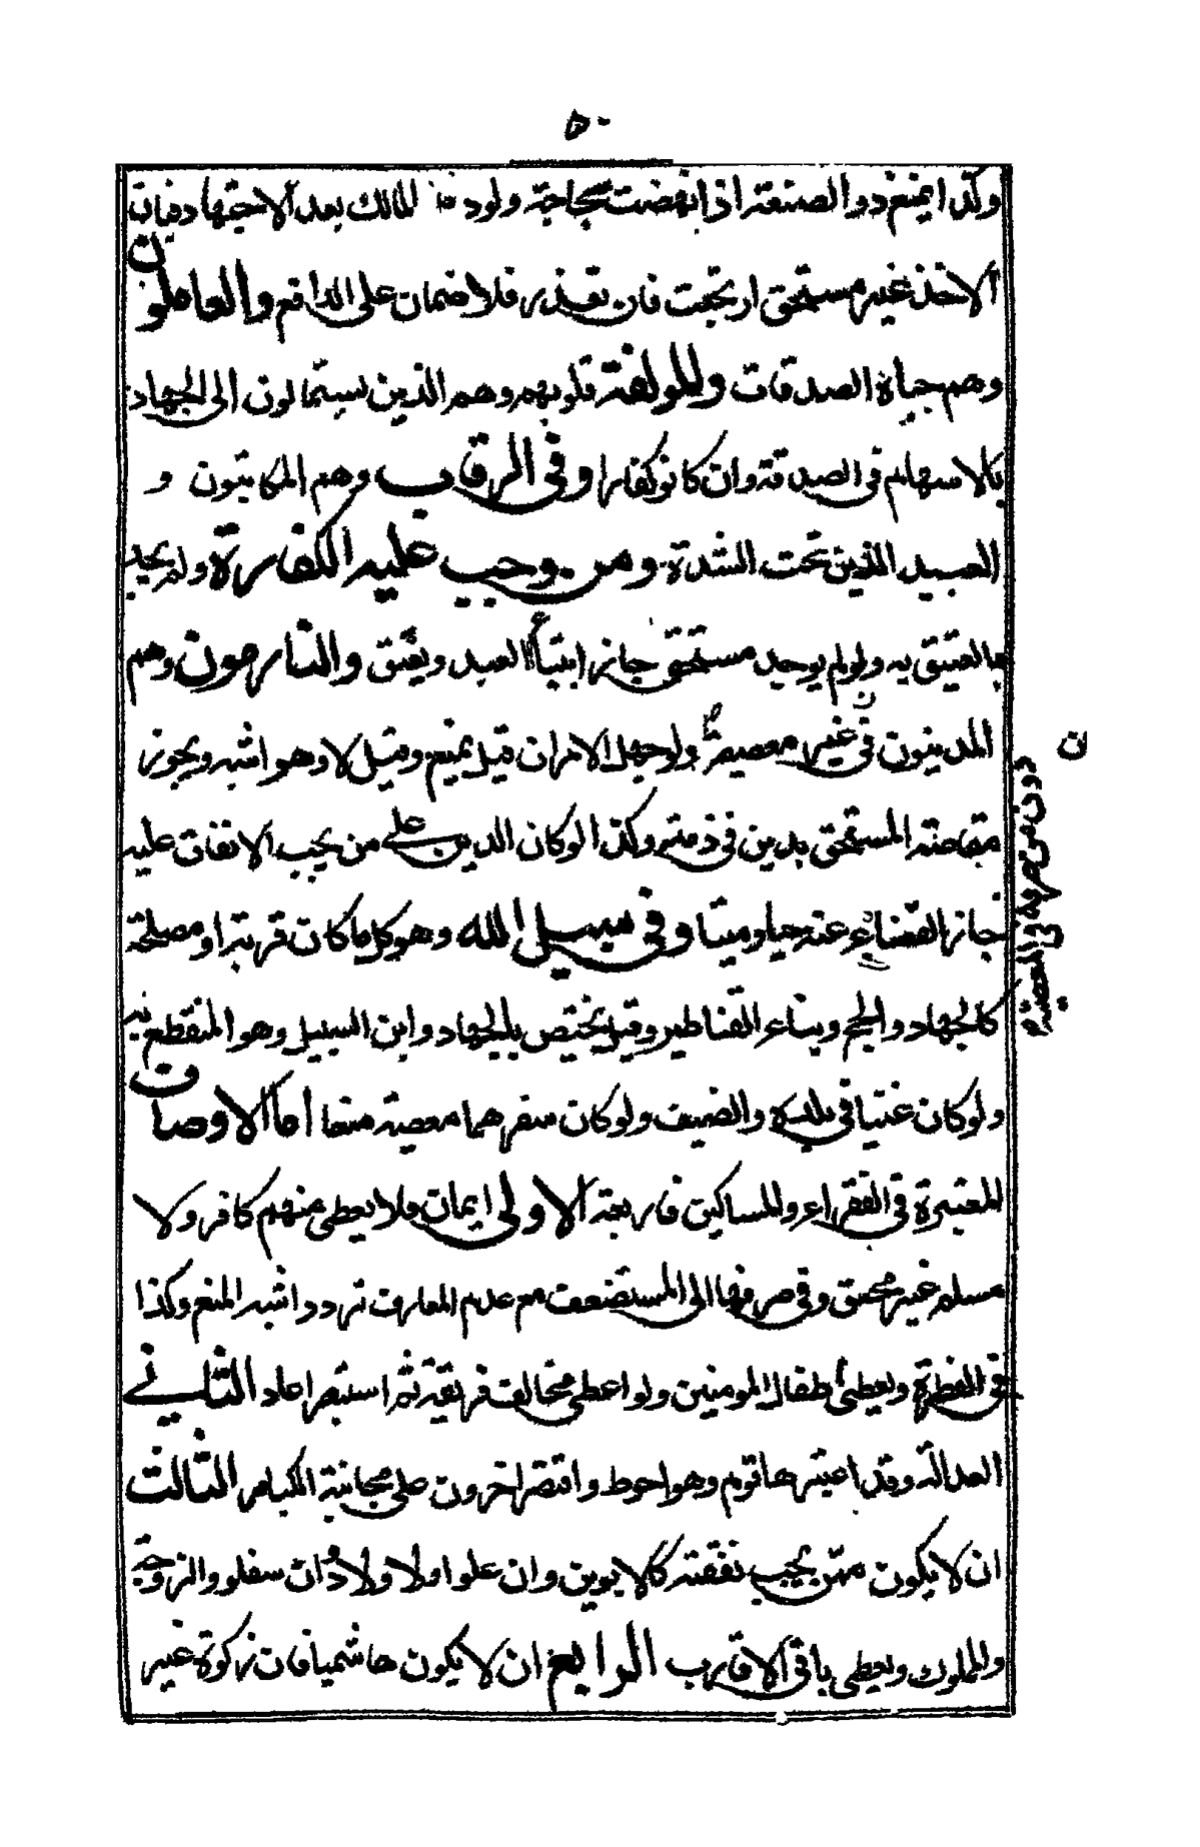 ٥٠
وكذا يمنع ذو الصنعة اذا نهضت بحاجته ولو دفعها المالك بعد الاجتهاد فبان
الاخذ غير مستحق ارتجعت فان تعذر فلا ضمان على الدافع والعاملون
وهم جباة الصدقات والمولفة قلوبهم وهم الذين يستمالون الى الجهاد
بالاسهام فى الصدقة وان كانوا كفارا وفى الرقاب وهم المكاتبون و
العبيد الذين تحت الشدة ومن وجب عليه الكفارة ولم يجد
ما يعتق به ولو لم يوجد مستحق جاز ابتياع العبد ويعتق والغارمون وهم
المدينون فى غير معصية ولو جهل الامران قيل يمنع وقيل لا وهو اشبه ويجوز
مقاصة المستحق بدين فى ذمته وكذا لو كان الدين على من يجب الانفاق عليه
جاز القضاء عنه حيا وميتا وفى سبيل الله وهو كل ما كان قربة او مصلحة
كالجهاد والحج وبناء القناطير وقيل يختص بالجهاد وابن السبيل وهو المنقطع به
ولو كان غنيا فى بلده والضيف ولو كان سفرهما معصية منعا اما الاوصاف
المعتبرة فى الفقراء والمساكين فاربعة الاولى ايمان فلا يعطى منهم كافر ولا
مسلم غير محق وفى صرفها الى المستضعف مع عدم العارف تردد اشبه المنع وكذا
فى الفطرة ويعطى اطفال المومنين ولو اعطى مخالف فريقه ثم استبصر اعاد الثانى
العدالة وقد اعتبرها قوم وهو احوط واقتصر اخرون على مجانبة الكباير الثالث
ان لا يكون ممن يجب نفقته كالابوين وان علوا والاولاد وان سفلو والزوجة
والمملوك ويعطى باقى الاقارب الرابع ان لا يكون هاشميا فان زكوة غير
دون من صرفه فى المعصية